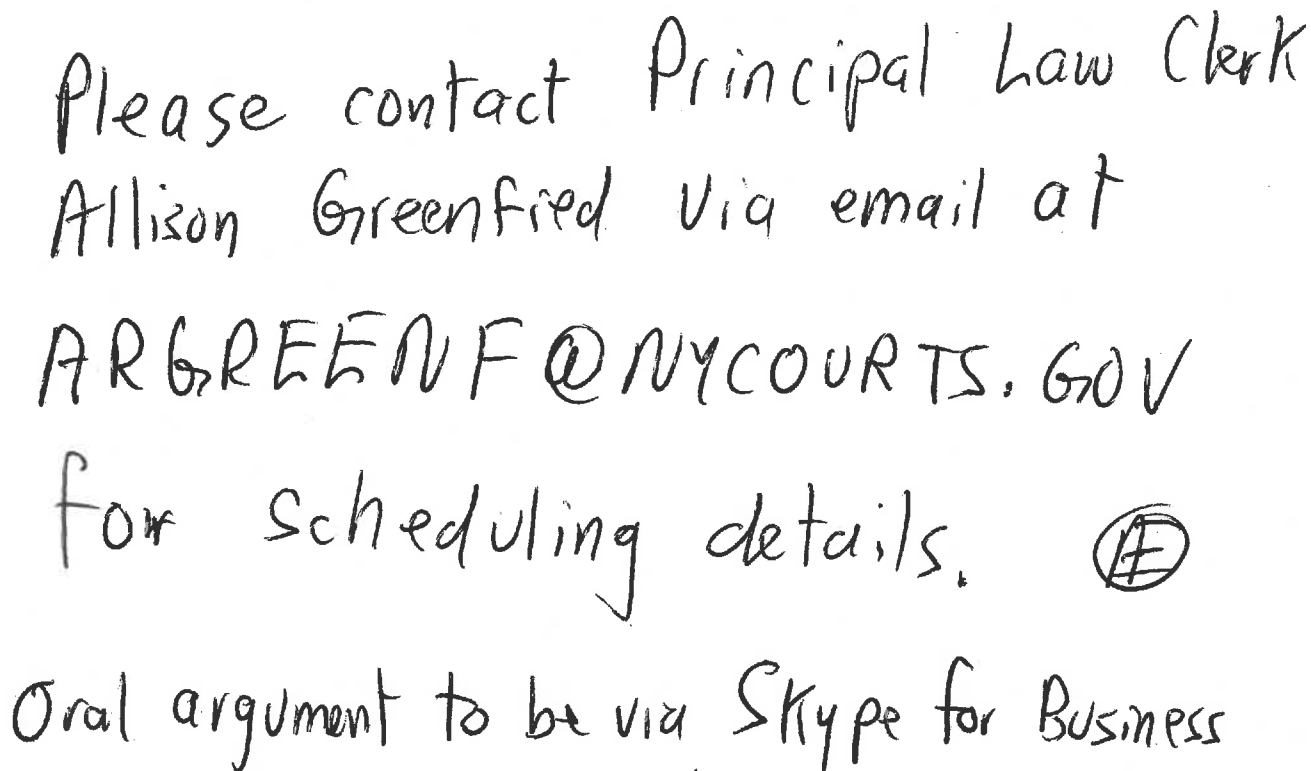 Please contact Principal Law Clerk
Allison Greenfied via email at
ARGREENF@NYCOURTS.GOV
for scheduling details. AE
Oral argument to be via Skype for Business